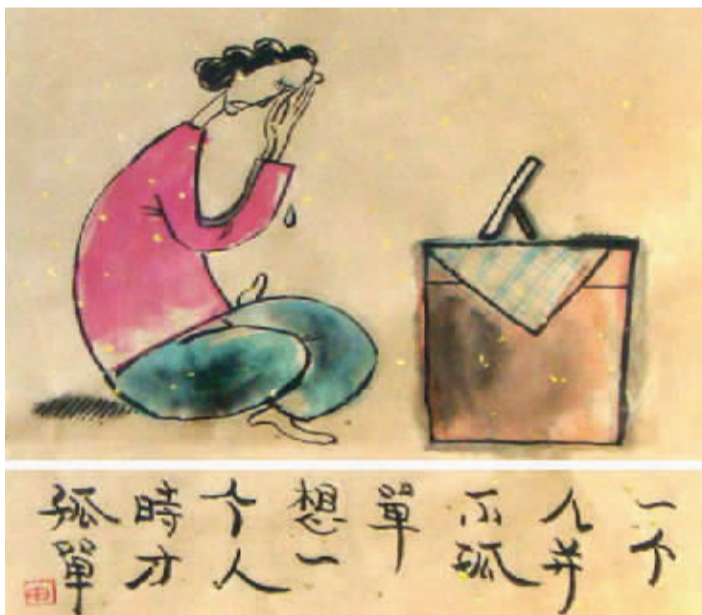 一个
人并
不孤
單
想一
个人
時才
孤單